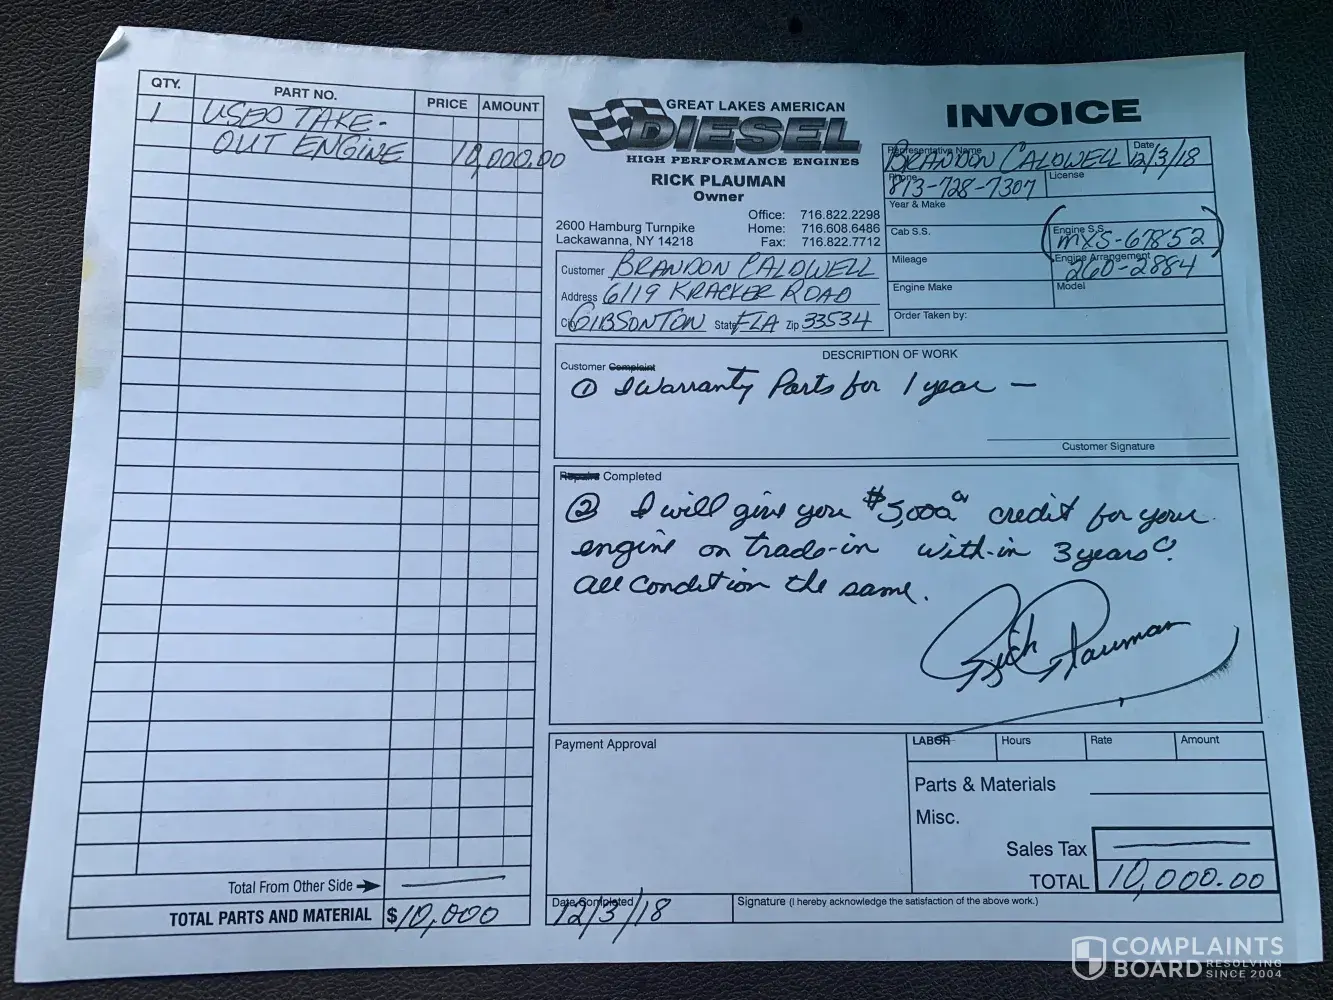 QTY. PART NO. PRICE AMOUNT
1 USED TAKE-
OUT ENGINE 10,000.00
Total From Other Side —
TOTAL PARTS AND MATERIAL $10,000
GREAT LAKES AMERICAN
DIESEL
HIGH PERFORMANCE ENGINES
RICK PLAUMAN
Owner
Office: 716.822.2298
2600 Hamburg Turnpike Home: 716.608.6486
Lackawanna, NY 14218 Fax: 716.822.7712
Customer BRANDON CALDWELL
Address 6119 KRACKER ROAD
City GIBSONTON State FLA Zip 33534
INVOICE
Representative Name BRANDON CALDWELL Date 12/3/18
Phone 813-728-7307 License
Year & Make
Cab S.S. Engine S.S. (MXS-67852)
Mileage Engine Arrangement 260-2884
Engine Make Model
Order Taken by:
DESCRIPTION OF WORK
Customer Complaint
① I Warranty Parts for 1 year —
Customer Signature
Repairs Completed
② I will give you $5,000 credit for your
engine on trade-in with-in 3 years.
All condition the same.
Rick Plauman
Payment Approval LABOR Hours Rate Amount
Parts & Materials
Misc.
Sales Tax —
TOTAL 10,000.00
Date Completed 12/3/18 Signature (I hereby acknowledge the satisfaction of the above work.)
COMPLAINTS
BOARD RESOLVING
SINCE 2004